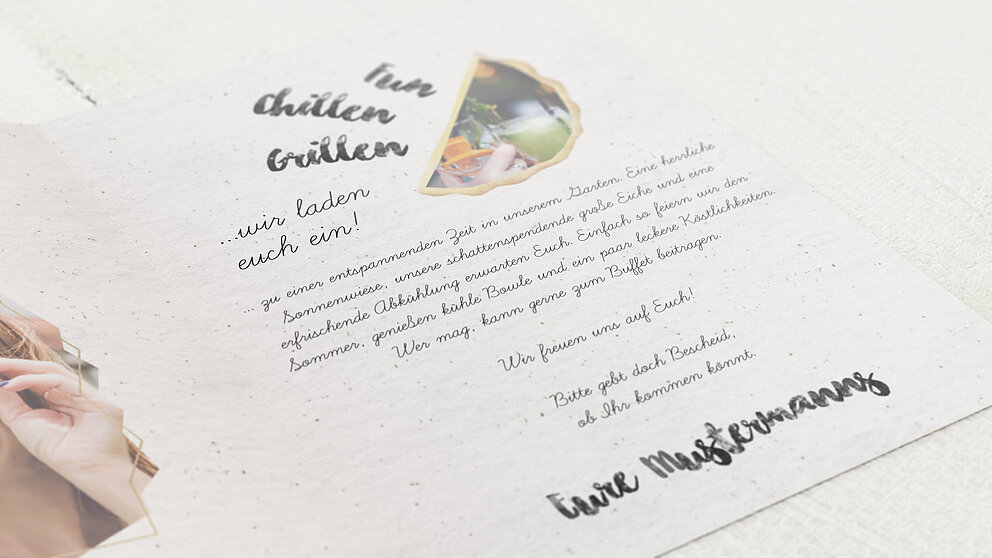 Fun
Chillen
Grillen
...wir laden
euch ein!
... zu einer entspannenden Zeit in unserem Garten. Eine herrliche
Sonnenwiese, unsere schattenspendende große Eiche und eine
erfrischende Abkühlung erwarten Euch. Einfach so feiern wir den
Sommer, genießen kühle Boule und ein paar leckere Köstlichkeiten.
Wer mag, kann gerne zum Buffet beitragen.
Wir freuen uns auf Euch!
Bitte gebt doch Bescheid,
ob Ihr kommen könnt.
Eure Mustermanns